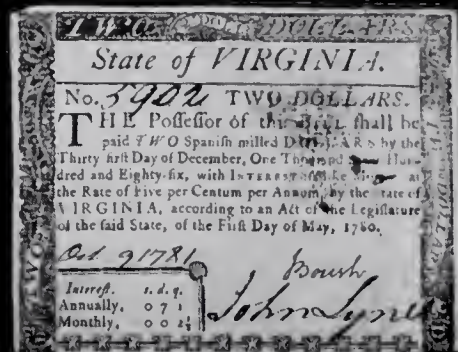 TWO DOLLARS
State of VIRGINIA.
No. 5902 TWO DOLLARS.
THE Poſſeſſor of this BILL ſhall be
paid TWO Spaniſh milled DOLLARS by the
Thirty firſt Day of December, One Thouſand Hun-
dred and Eighty-ſix, with INTEREST at
the Rate of Five per Centum per Annum, by the State of
VIRGINIA, according to an Act of the Legiſlature
of the ſaid State, of the Firſt Day of May, 1780.
Oct 9 1781
Boush
Intereſt. s. d. q.
Annually, 0 7 1
Monthly, 0 0 2⅖
John Lyne